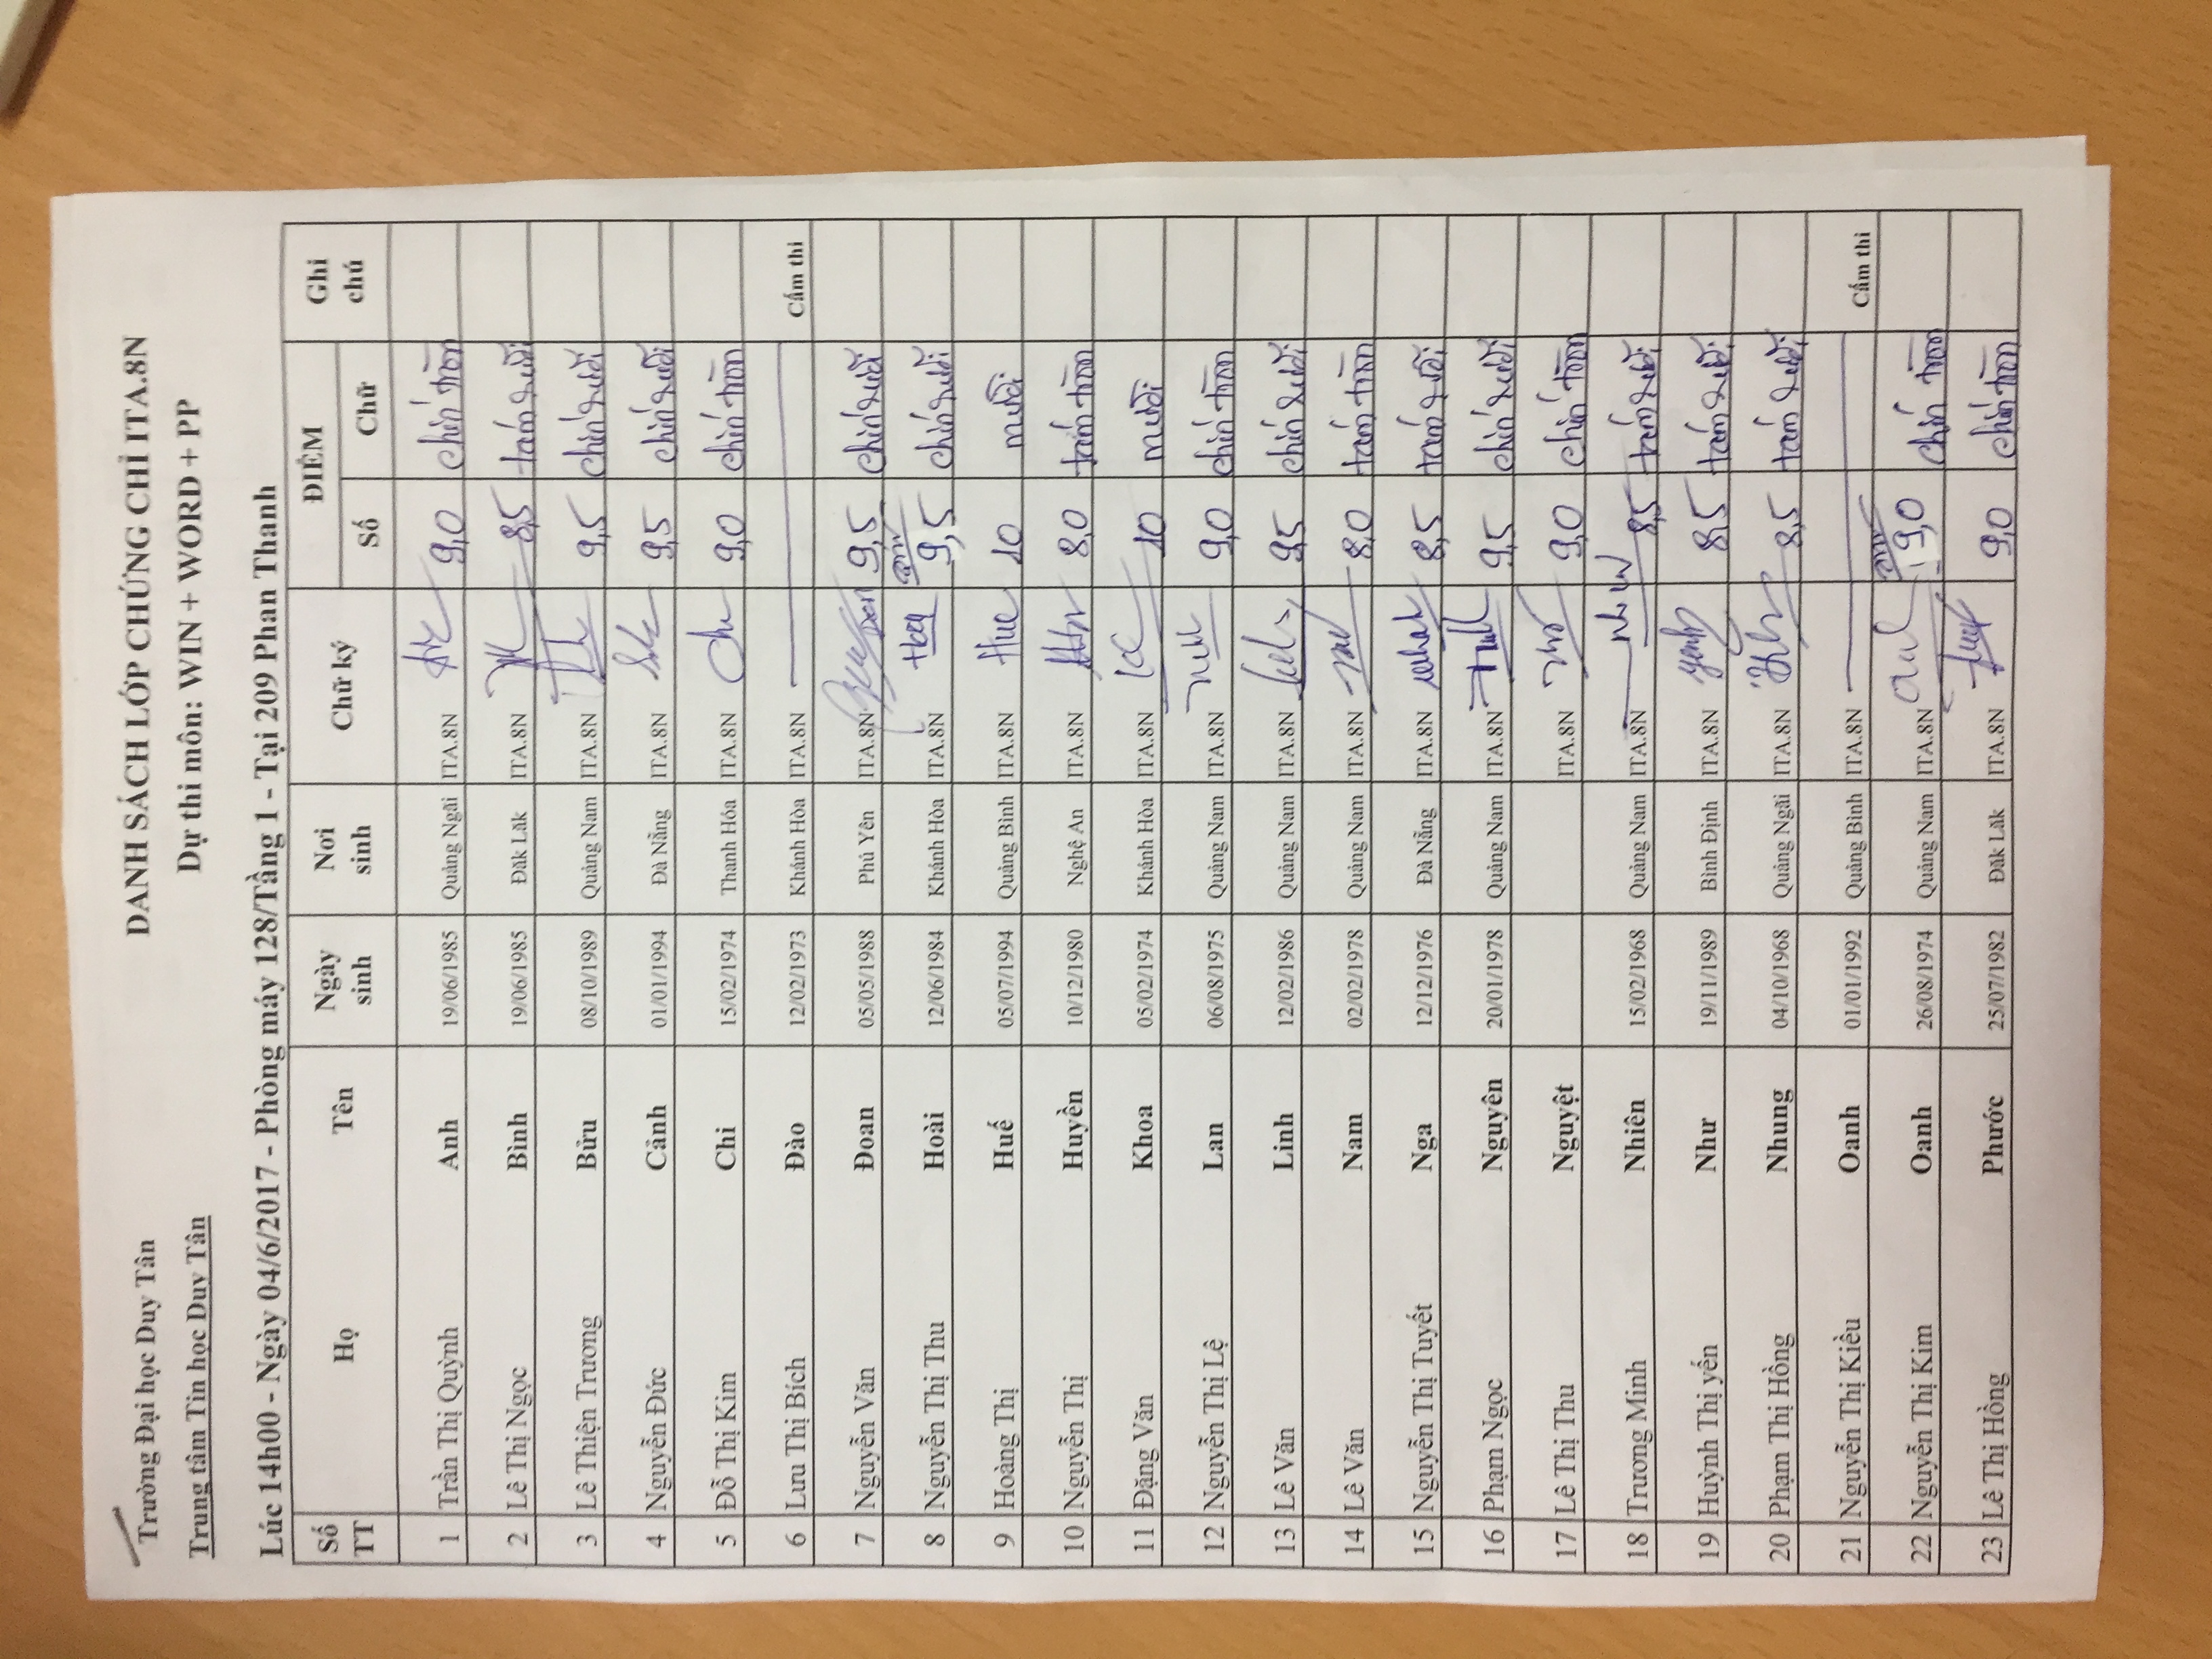 Trường Đại học Duy Tân DANH SÁCH LỚP CHỨNG CHỈ ITA.8N
Trung tâm Tin học Duy Tân Dự thi môn: WIN + WORD + PP
Lúc 14h00 - Ngày 04/6/2017 - Phòng máy 128/Tầng 1 - Tại 209 Phan Thanh
Số TT Họ Tên Ngày sinh Nơi sinh Chữ ký ĐIỂM Ghi chú
Số Chữ
1 Trần Thị Quỳnh Anh 19/06/1985 Quảng Ngãi ITA.8N 9,0 chín tròn
2 Lê Thị Ngọc Bình 19/06/1985 Đăk Lăk ITA.8N 8,5 tám rưỡi
3 Lê Thiện Trương Bửu 08/10/1989 Quảng Nam ITA.8N 9,5 chín rưỡi
4 Nguyễn Đức Cảnh 01/01/1994 Đà Nẵng ITA.8N 9,5 chín rưỡi
5 Đỗ Thị Kim Chi 15/02/1974 Thanh Hóa ITA.8N 9,0 chín tròn
6 Lưu Thị Bích Đào 12/02/1973 Khánh Hòa Cấm thi
7 Nguyễn Văn Đoan 05/05/1988 Phú Yên ITA.8N 9,5 chín rưỡi
8 Nguyễn Thị Thu Hoài 12/06/1984 Khánh Hòa ITA.8N 9,5 chín rưỡi
9 Hoàng Thị Huế 05/07/1994 Quảng Bình ITA.8N Hue 10 mười
10 Nguyễn Thị Huyền 10/12/1980 Nghệ An ITA.8N 8,0 tám tròn
11 Đặng Văn Khoa 05/02/1974 Khánh Hòa ITA.8N 10 mười
12 Nguyễn Thị Lệ Lan 06/08/1975 Quảng Nam ITA.8N 9,0 chín tròn
13 Lê Văn Linh 12/02/1986 Quảng Nam ITA.8N 9,5 chín rưỡi
14 Lê Văn Nam 02/02/1978 Quảng Nam ITA.8N 8,0 tám tròn
15 Nguyễn Thị Tuyết Nga 12/12/1976 Đà Nẵng ITA.8N 8,5 tám rưỡi
16 Phạm Ngọc Nguyên 20/01/1978 Quảng Nam ITA.8N 9,5 chín rưỡi
17 Lê Thị Thu Nguyệt ITA.8N 9,0 chín tròn
18 Trương Minh Nhiên 15/02/1968 Quảng Nam ITA.8N 8,5 tám rưỡi
19 Huỳnh Thị yến Như 19/11/1989 Bình Định ITA.8N 8,5 tám rưỡi
20 Phạm Thị Hồng Nhung 04/10/1968 Quảng Ngãi ITA.8N 8,5 tám rưỡi
21 Nguyễn Thị Kiều Oanh 01/01/1992 Quảng Bình ITA.8N Cấm thi
22 Nguyễn Thị Kim Oanh 26/08/1974 Quảng Nam ITA.8N 9,0 chín tròn
23 Lê Thị Hồng Phước 25/07/1982 Đăk Lăk ITA.8N 9,0 chín tròn